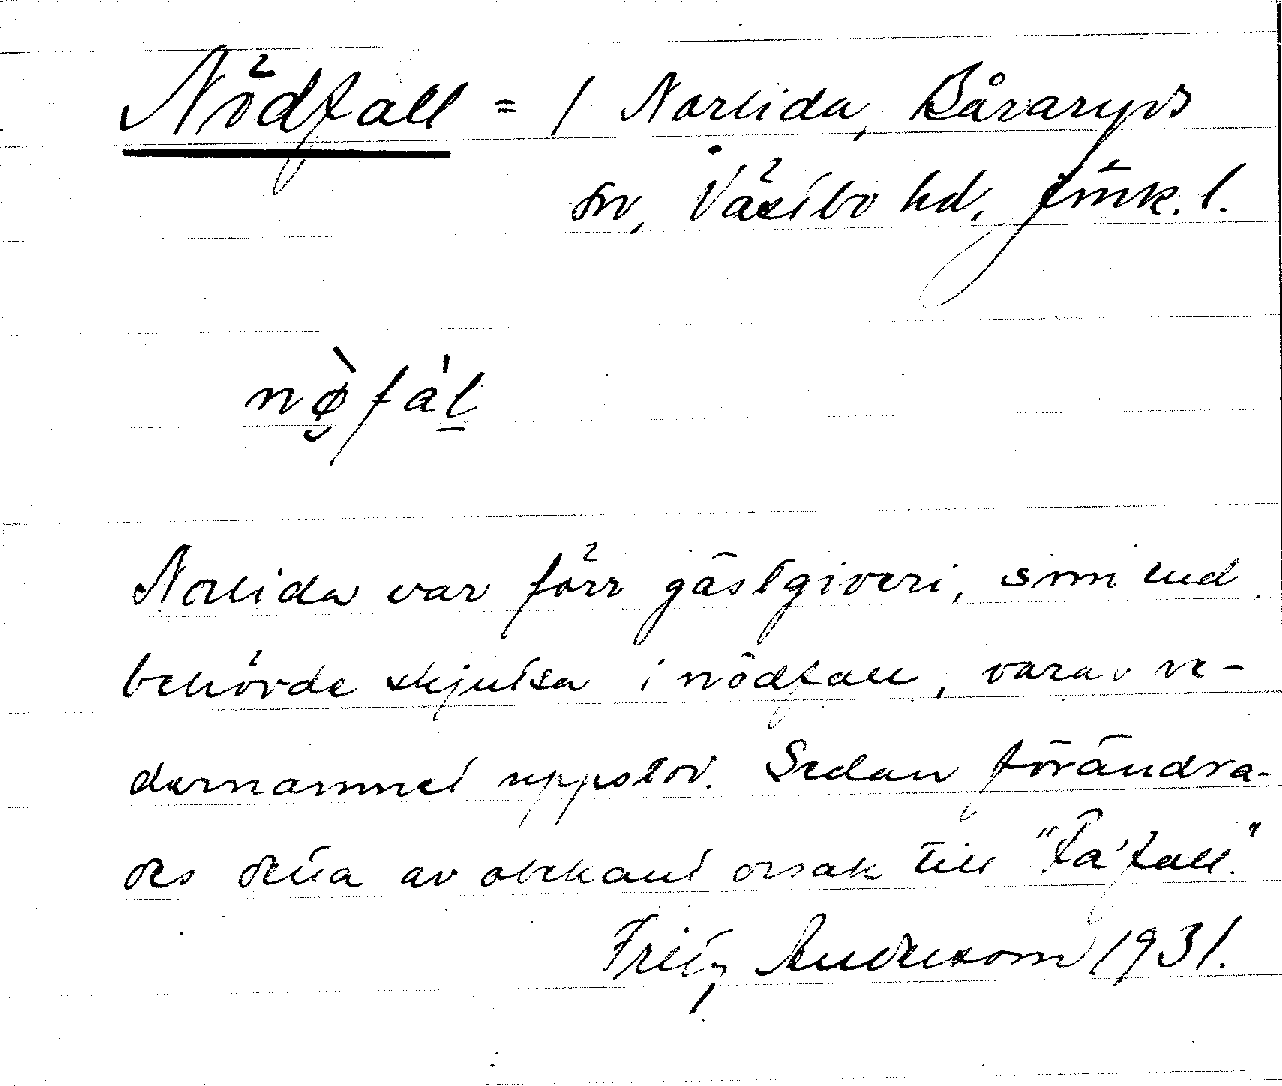 Nödfall = / Norlida, Båraryds
sn, Västbo hd, Jönk. l.
nø̀fál
Norlida var förr gästgiveri, som end.
behövde skjutsa i nödfall, varav ve-
dernamnet uppstod. Sedan förändra-
des detta av obekant orsak till "Fa'fall."
Fritz Andersson 1931.